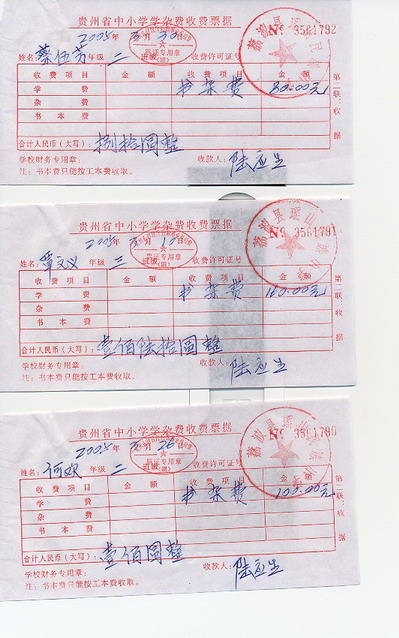 贵州省中小学学杂费收费票据
2005年3月10日 № 3561792
姓名: 蔡伍芳 年级 二 班级 收费许可证号
收费项目 金额 收费项目 金额
学费 书杂费 80.00元
杂费
书本费
合计人民币(大写): 捌拾圆整
学校财务专用章: 收款人: 陆应生
注: 书本费只能按工本费收取。
第二联: 收据
贵州省中小学学杂费收费票据
2005年3月10日 № 3561791
姓名: 覃文义 年级 三 班级 收费许可证号
收费项目 金额 收费项目 金额
学费 书杂费 160.00元
杂费
书本费
合计人民币(大写): 壹佰陆拾圆整
学校财务专用章: 收款人: 陆应生
注: 书本费只能按工本费收取。
第二联: 收据
贵州省中小学学杂费收费票据
2005年3月 № 3561790
姓名: 何 年级 二 班级 收费许可证号
收费项目 金额 收费项目 金额
学费 书杂费 100.00元
杂费
书本费
合计人民币(大写): 壹佰圆整
学校财务专用章: 收款人: 陆应生
注: 书本费只能按工本费收取。
第二联: 收据